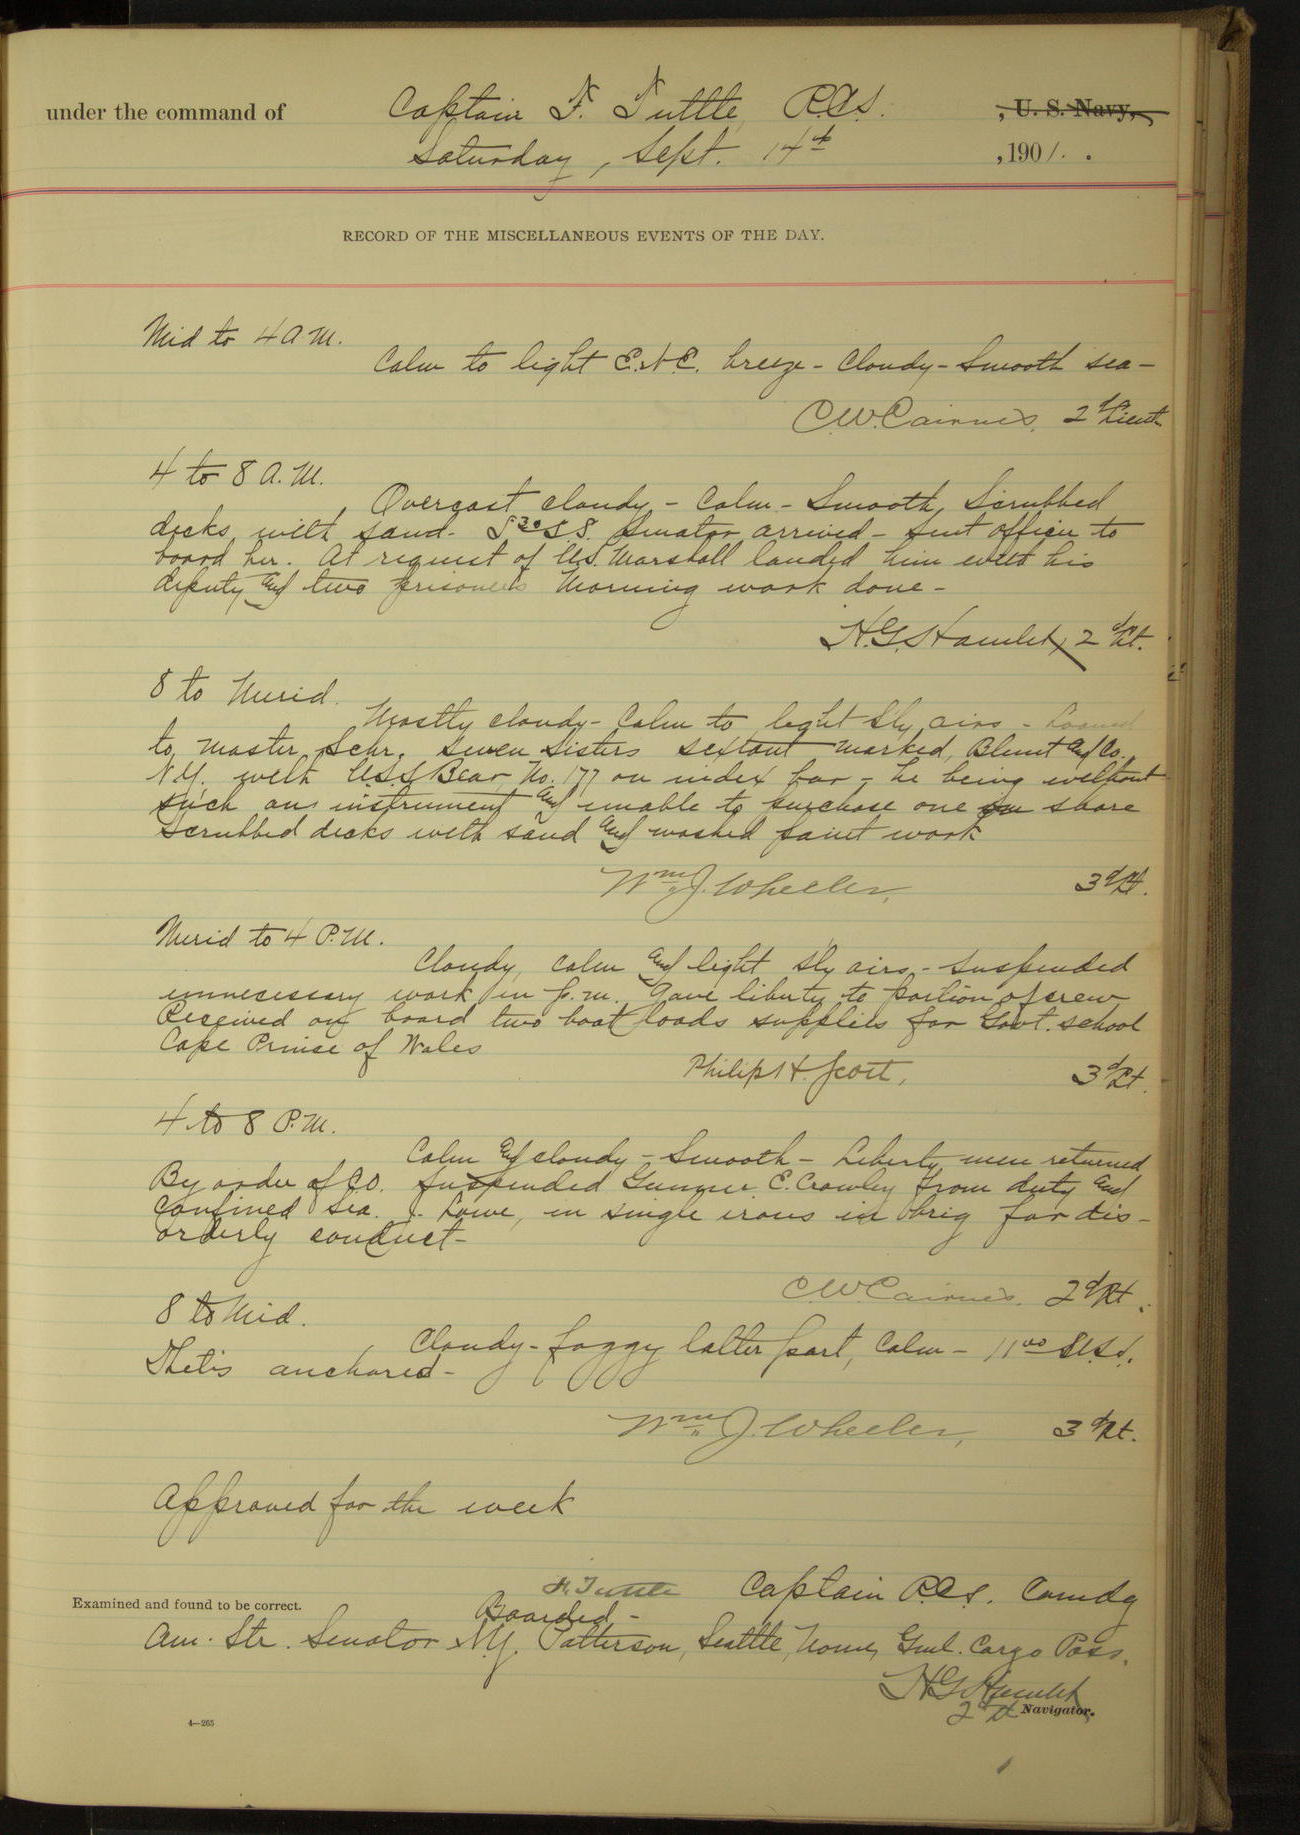 under the command of Captain F. Tuttle, R.C.S. , U. S. Navy,
Saturday, Sept. 14th , 1901.
RECORD OF THE MISCELLANEOUS EVENTS OF THE DAY.
Mid to 4 A.M.
Calm to light E.N.E. breeze - Cloudy - Smooth sea -
C.W. Cairnes, 2d Lieut
4 to 8 A.M.
Overcast cloudy - Calm - Smooth, Scrubbed
decks with sand. 5 30 S.S. Senator arrived - sent officer to
board her. At request of U.S. Marshall landed him with his
deputy and two prisoners Morning work done -
H.G. Hamlet, 2d Lt.
8 to Merid.
Mostly cloudy - Calm to light Sly airs - Loaned
to Master Schr. Seven Sisters sextant marked, Blunt and Co.
N.Y. with U.S.S. Bear, No. 177 on index bar - he being without
such an instrument and unable to purchase one on shore
Scrubbed decks with sand and washed paint work
Wm. J. Wheeler, 3d Lt.
Merid to 4 P.M.
Cloudy, calm and light Sly airs - Suspended
unnecessary work in p.m. Gave liberty to portion of crew
Received on board two boat loads supplies for Govt. school
Cape Prince of Wales
Philip H. Scott, 3d Lt.
4 to 8 P.M.
Calm and cloudy - Smooth - Liberty men returned
By order of C.O. suspended Gunner E. Crowley from duty and
confined Sea. J. Lowe, in single irons in brig for dis-
orderly conduct -
C.W. Cairnes. 2d Lt.
8 to Mid.
Cloudy - foggy latter part, Calm - 11 00 U.S.S.
Thetis anchored -
Wm. J. Wheeler, 3d Lt.
Approved for the week
F. Tuttle Captain R.C.S. Comdg
Examined and found to be correct.
Boarded -
Am. Str. Senator N.Y. Patterson, Seattle, Nome, Genl. Cargo Pass.
H G Hamlet
2d Lt Navigator.
4—265